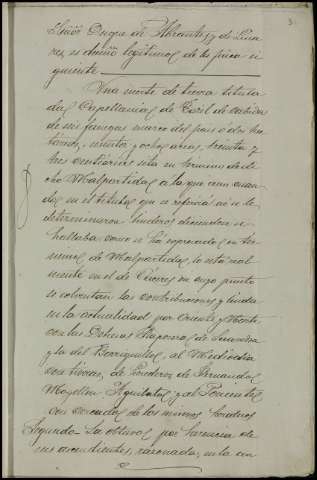 Señor Duque de Abrantes y de Lina
res, es dueño legítimo de la finca si
guiente
Una suerte de tierra titula
da Capellanías de Casil de cabida
de seis fanegas marco del pais ó dos hec
táreas, y ocho areas, treinta y
tres centiáreas sita en término de di
cho Malpartida, á la que aun cuan
do en el título que se referirá no se le
determinaron linderos diciendo se
hallaba como se ha expresado en tér
mino de Malpartida, lo está real
mente en el de Cáceres en cuyo punto
se solventan las contribuciones y linda
en la actualidad por Oriente y Norte
con las Dehesas
y la del al Mediodia
con tierras de herederos de Fernando
Mogollon y al Poniente
con cercados de los mismos herederos
Segundo La obtuvo por herencia de
sus ascendientes, en la an